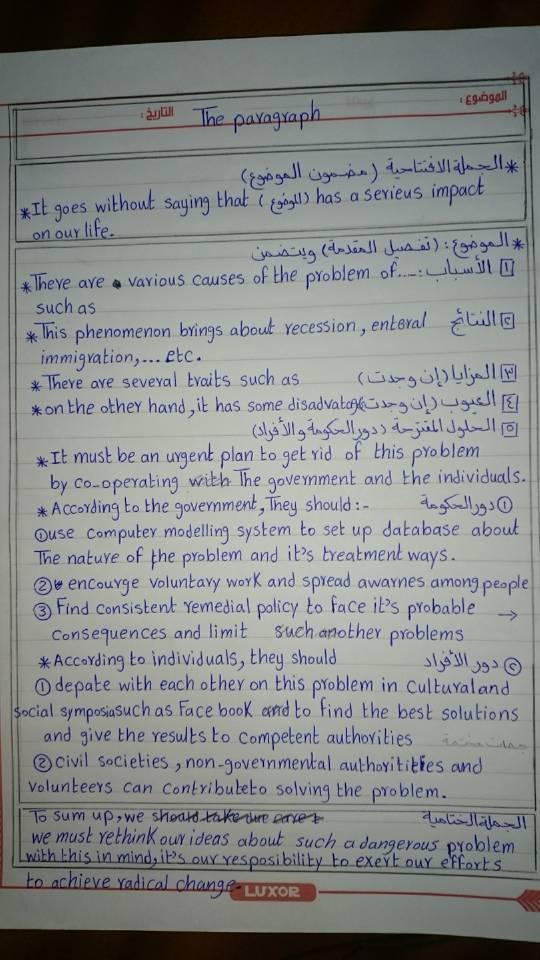 الموضوع :
التاريخ :
The paragraph
* الجملة الافتتاحية (مضمون الموضوع)
* It goes without saying that (الموضوع) has a serieus impact
on our life.
* الموضوع : (تفصيل المقدمة) ويتضمن
١ الأسباب :
* There are various causes of the problem of....
such as
* This phenomenon brings about recession, enteral ٢ النتائج
immigration,... etc.
* There are several traits such as ٣ المزايا (إن وجدت)
* on the other hand, it has some disadvatag ٤ العيوب (إن وجدت)
٥ الحلول المقترحة (دور الحكومة والأفراد)
* It must be an urgent plan to get rid of this problem
by co-operating with The government and the individuals.
* According to the government, They should :- ① دور الحكومة
① use computer modelling system to set up database about
The nature of the problem and it's treatment ways.
② encourge voluntary work and spread awarnes among people
③ Find consistent remedial policy to face it's probable →
consequences and limit such another problems
* According to individuals, they should ② دور الأفراد
① depate with each other on this problem in Cultural and
Social symposia such as Face book and to find the best solutions
and give the results to competent authorities
② civil societies, non-governmental authoritities and
volunteers can contribute to solving the problem.
To sum up, we should take our الجملة الختامية
we must rethink our ideas about such a dangerous problem
with this in mind, it's our resposibility to exert our efforts
to achieve radical change.
LUXOR